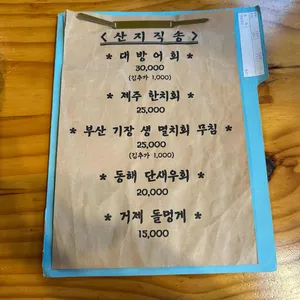 < 산지직송 >
* 대방어회 *
30,000
(김추가 1,000)
* 제주 한치회 *
25,000
* 부산 기장 생 멸치회 무침 *
25,000
(김추가 1,000)
* 동해 단새우회 *
20,000
* 거제 돌멍게 *
15,000